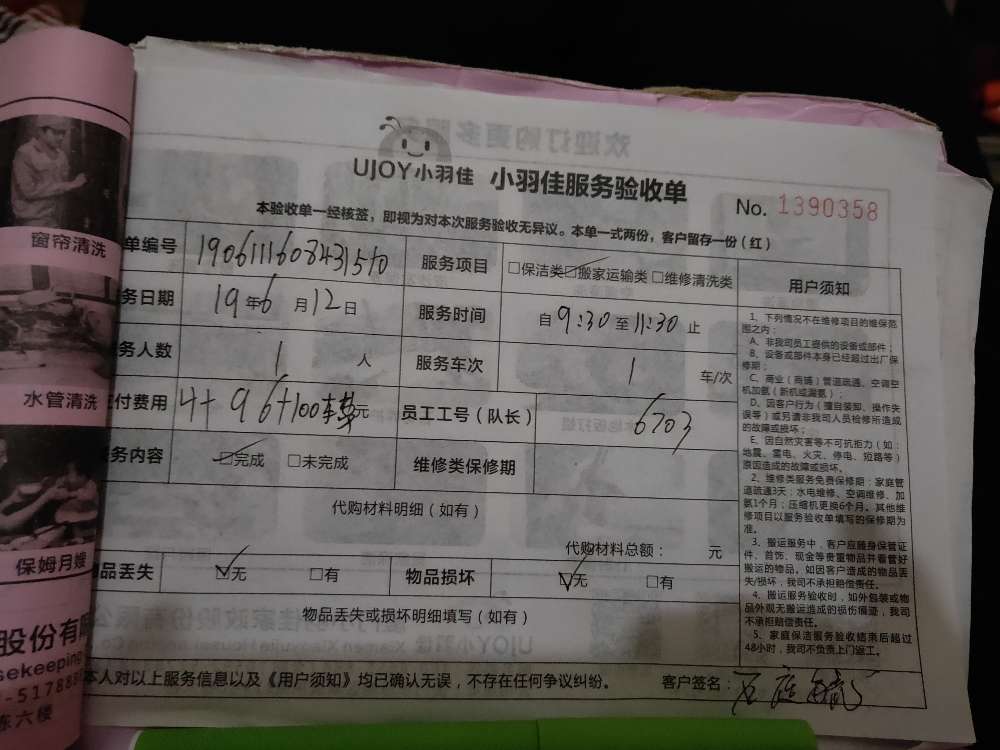 窗帘清洗
水管清洗
保姆月嫂
股份有限
sekeeping
-517888
东六楼
UJOY小羽佳 小羽佳服务验收单
No. 1390358
本验收单一经核签，即视为对本次服务验收无异议。本单一式两份，客户留存一份（红）
单编号 1906111608431510 服务项目 □保洁类 ☑搬家运输类 □维修清洗类
务日期 19年6月12日 服务时间 自9:30至11:30止
务人数 1 人 服务车次 1 车/次
应付费用 4+96+100 元 员工工号（队长） 6703
务内容 ☑完成 □未完成 维修类保修期
代购材料明细（如有）
代购材料总额： 元
物品丢失 ☑无 □有 物品损坏 ☑无 □有
物品丢失或损坏明细填写（如有）
本人对以上服务信息以及《用户须知》均已确认无误，不存在任何争议纠纷。 客户签名：
用户须知
1、下列情况不在维修项目的维保范
围之内：
A、非我司员工提供的设备或部件；
B、设备或部件本身已经超过出厂保
修期；
C、商业（商铺）管道疏通、空调空
机加氨（新机或漏氨）；
D、因客户行为（擅自装卸、操作失
误等）或另请非我司人员检修所造成
的故障或损坏；
E、因自然灾害等不可抗拒力（如：
地震、雷电、火灾、停电、短路等）
原因造成的故障或损坏。
2、维修类服务免费保修期：家庭管
道疏通3天；水电维修、空调维修、加
氨1个月；压缩机更换6个月。其他维
修项目以服务验收单填写的保修期为
准。
3、搬运服务中，客户应随身保管证
件、首饰、现金等贵重物品并看管好
搬运的物品。如因客户造成的物品丢
失/损坏，我司不承担赔偿责任。
4、搬运服务验收时，如外包装或物
品外观无搬运造成的损伤痕迹，我司
不承担赔偿责任。
5、家庭保洁服务验收结束后超过
48小时，我司不负责上门返工。